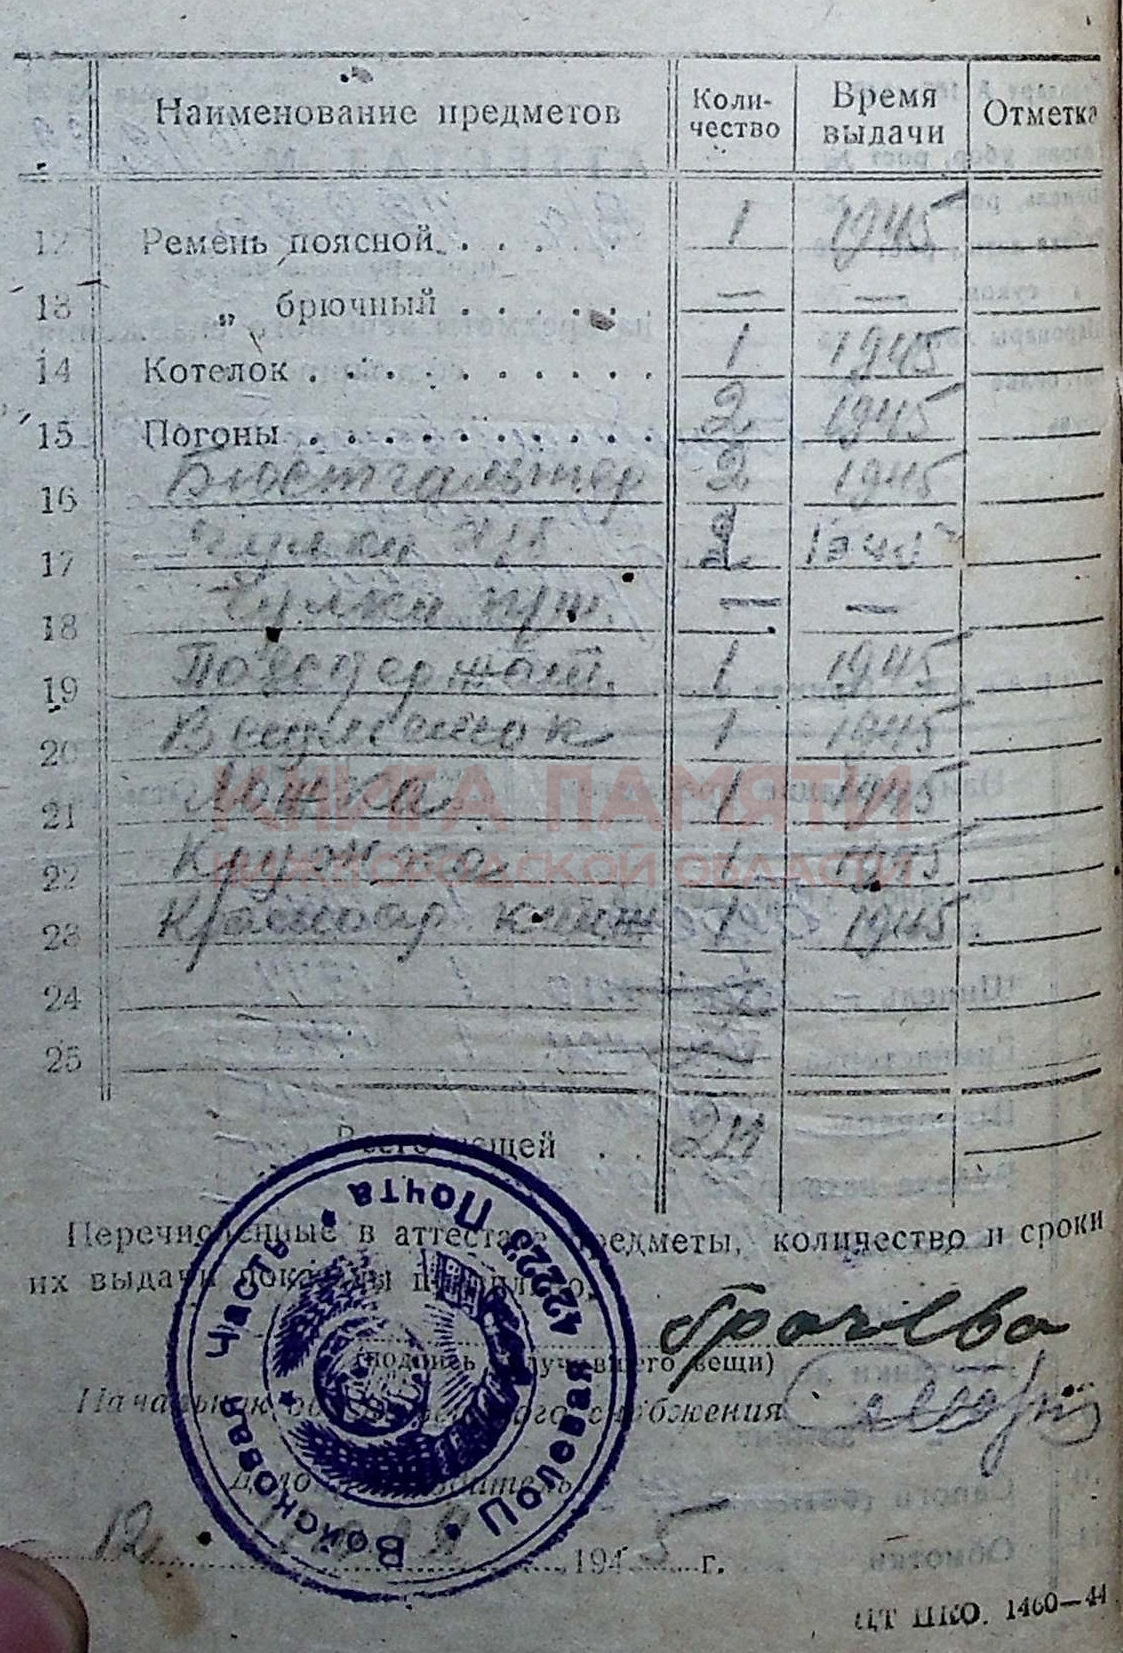 Наименование предметов Коли-чество Время выдачи Отметка
12 Ремень поясной . . . . . 1 1945
13 „ брючный . . . . . . — —
14 Котелок . . . . . . . . . . . 1 1945
15 Погоны . . . . . . . . . . . 2 1945
16 Бюстгальтер 2 1945
17 Чулки х/б 2
18 Чулки — —
19 1 1945
20 1 1945
21 Ложка 1 1945
22 Кружка 1 1945
23 Красноар. книж 1 1945
24
25
Всего вещей . . 24
Перечисленные в аттестате предметы, количество и сроки
их выдачи показаны правильно.
Грачева
(подпись получившего вещи)
Начальник снабжения
Делопроизводитель
12 194 5 г.
ЦТ НКО. 1460—44
Войсковая Часть ★ Полевая Почта 42225
КНИГА ПАМЯТИ
НИЖЕГОРОДСКОЙ ОБЛАСТИ